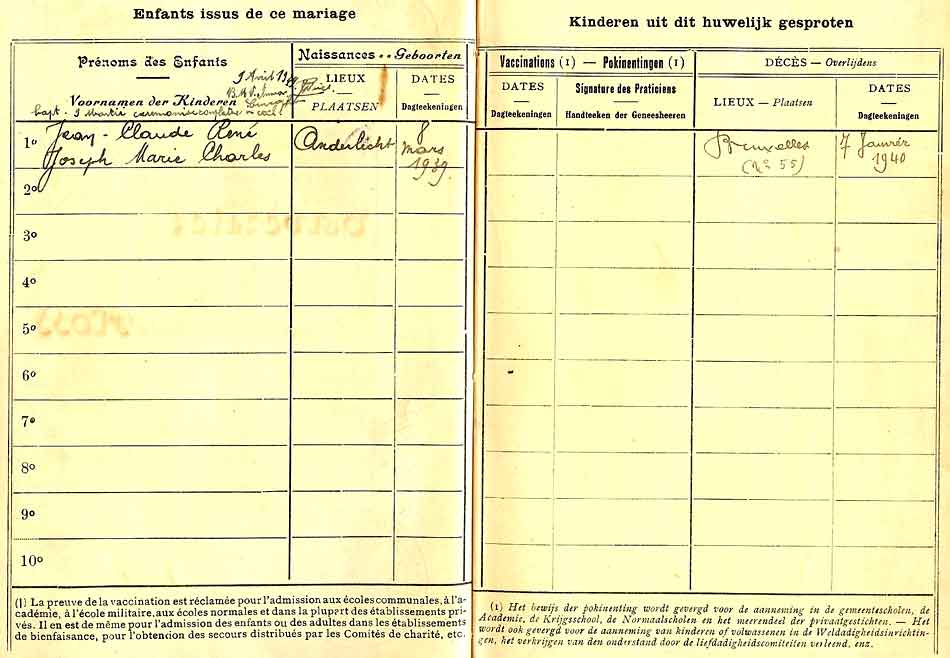 Enfants issus de ce mariage
Prénoms des Enfants
Voornamen der Kinderen
Naissances - Geboorten
LIEUX
PLAATSEN
DATES
Dagteekeningen
9 Avril 19
bapt.
1º Jean-Claude René
Joseph Marie Charles
Anderlecht
8
Mars
1939.
2º
3º
4º
5º
6º
7º
8º
9º
10º
(1) La preuve de la vaccination est réclamée pour l'admission aux écoles communales, à l'a-
cadémie, à l'école militaire, aux écoles normales et dans la plupart des établissements pri-
vés. Il en est de même pour l'admission des enfants ou des adultes dans les établissements
de bienfaisance, pour l'obtention des secours distribués par les Comités de charité, etc.
Kinderen uit dit huwelijk gesproten
Vaccinations (1) — Pokinentingen (1)
DATES
Dagteekeningen
Signature des Praticiens
Handteeken der Geneesheeren
DÉCÈS — Overlijdens
LIEUX — Plaatsen
DATES
Dagteekeningen
Bruxelles
(nº 55)
7 Janvier
1940
(1) Het bewijs der pokinenting wordt gevergd voor de aanneming in de gemeentescholen, de
Academie, de Krijgsschool, de Normaalscholen en het meerendeel der privaatgestichten. — Het
wordt ook gevergd voor de aanneming van kinderen of volwassenen in de Weldadigheidsinrichtin-
gen, het verkrijgen van den onderstand door de liefdadigheidscomiteiten verleend, enz.